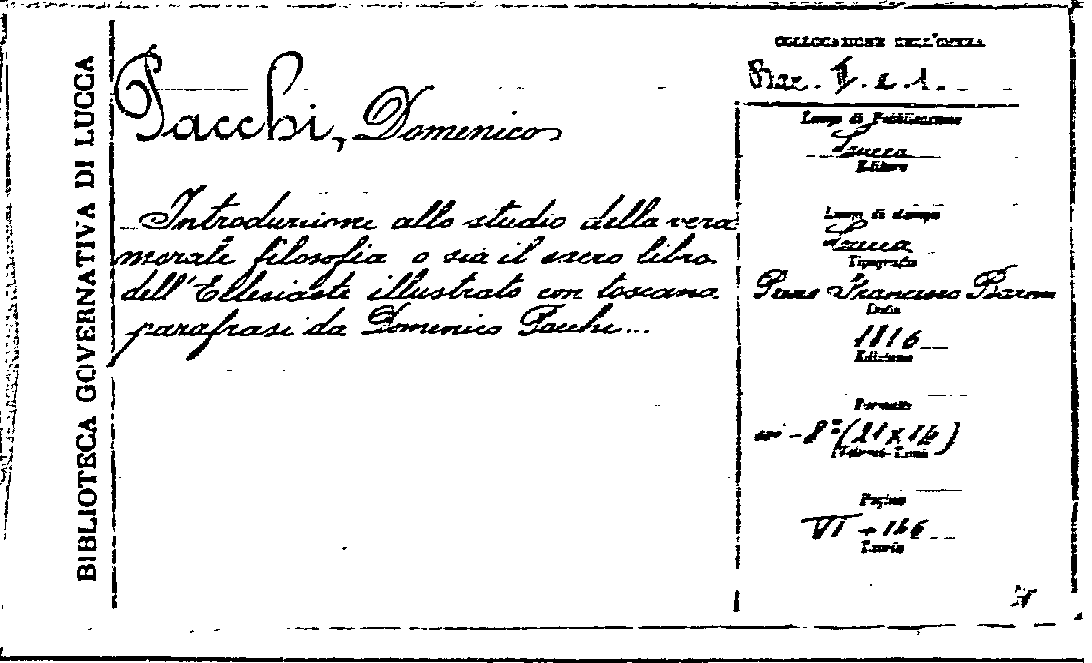 BIBLIOTECA GOVERNATIVA DI LUCCA
Pacchi, Domenico
Introduzione allo studio della vera
morale filosofia o sia il sacro libro
dell'Ellesiaste illustrato con toscana
parafrasi da Domenico Pacchi...
COLLOCAZIONE DELL'OPERA
Bac.
Luogo di Pubblicazione
Lucca
Editore
Luogo di stampa
Lucca
Tipografia
Francesco Baroni
Data
1816
Edizione
Formato
in-8º
Pagine
VI +
Tavole